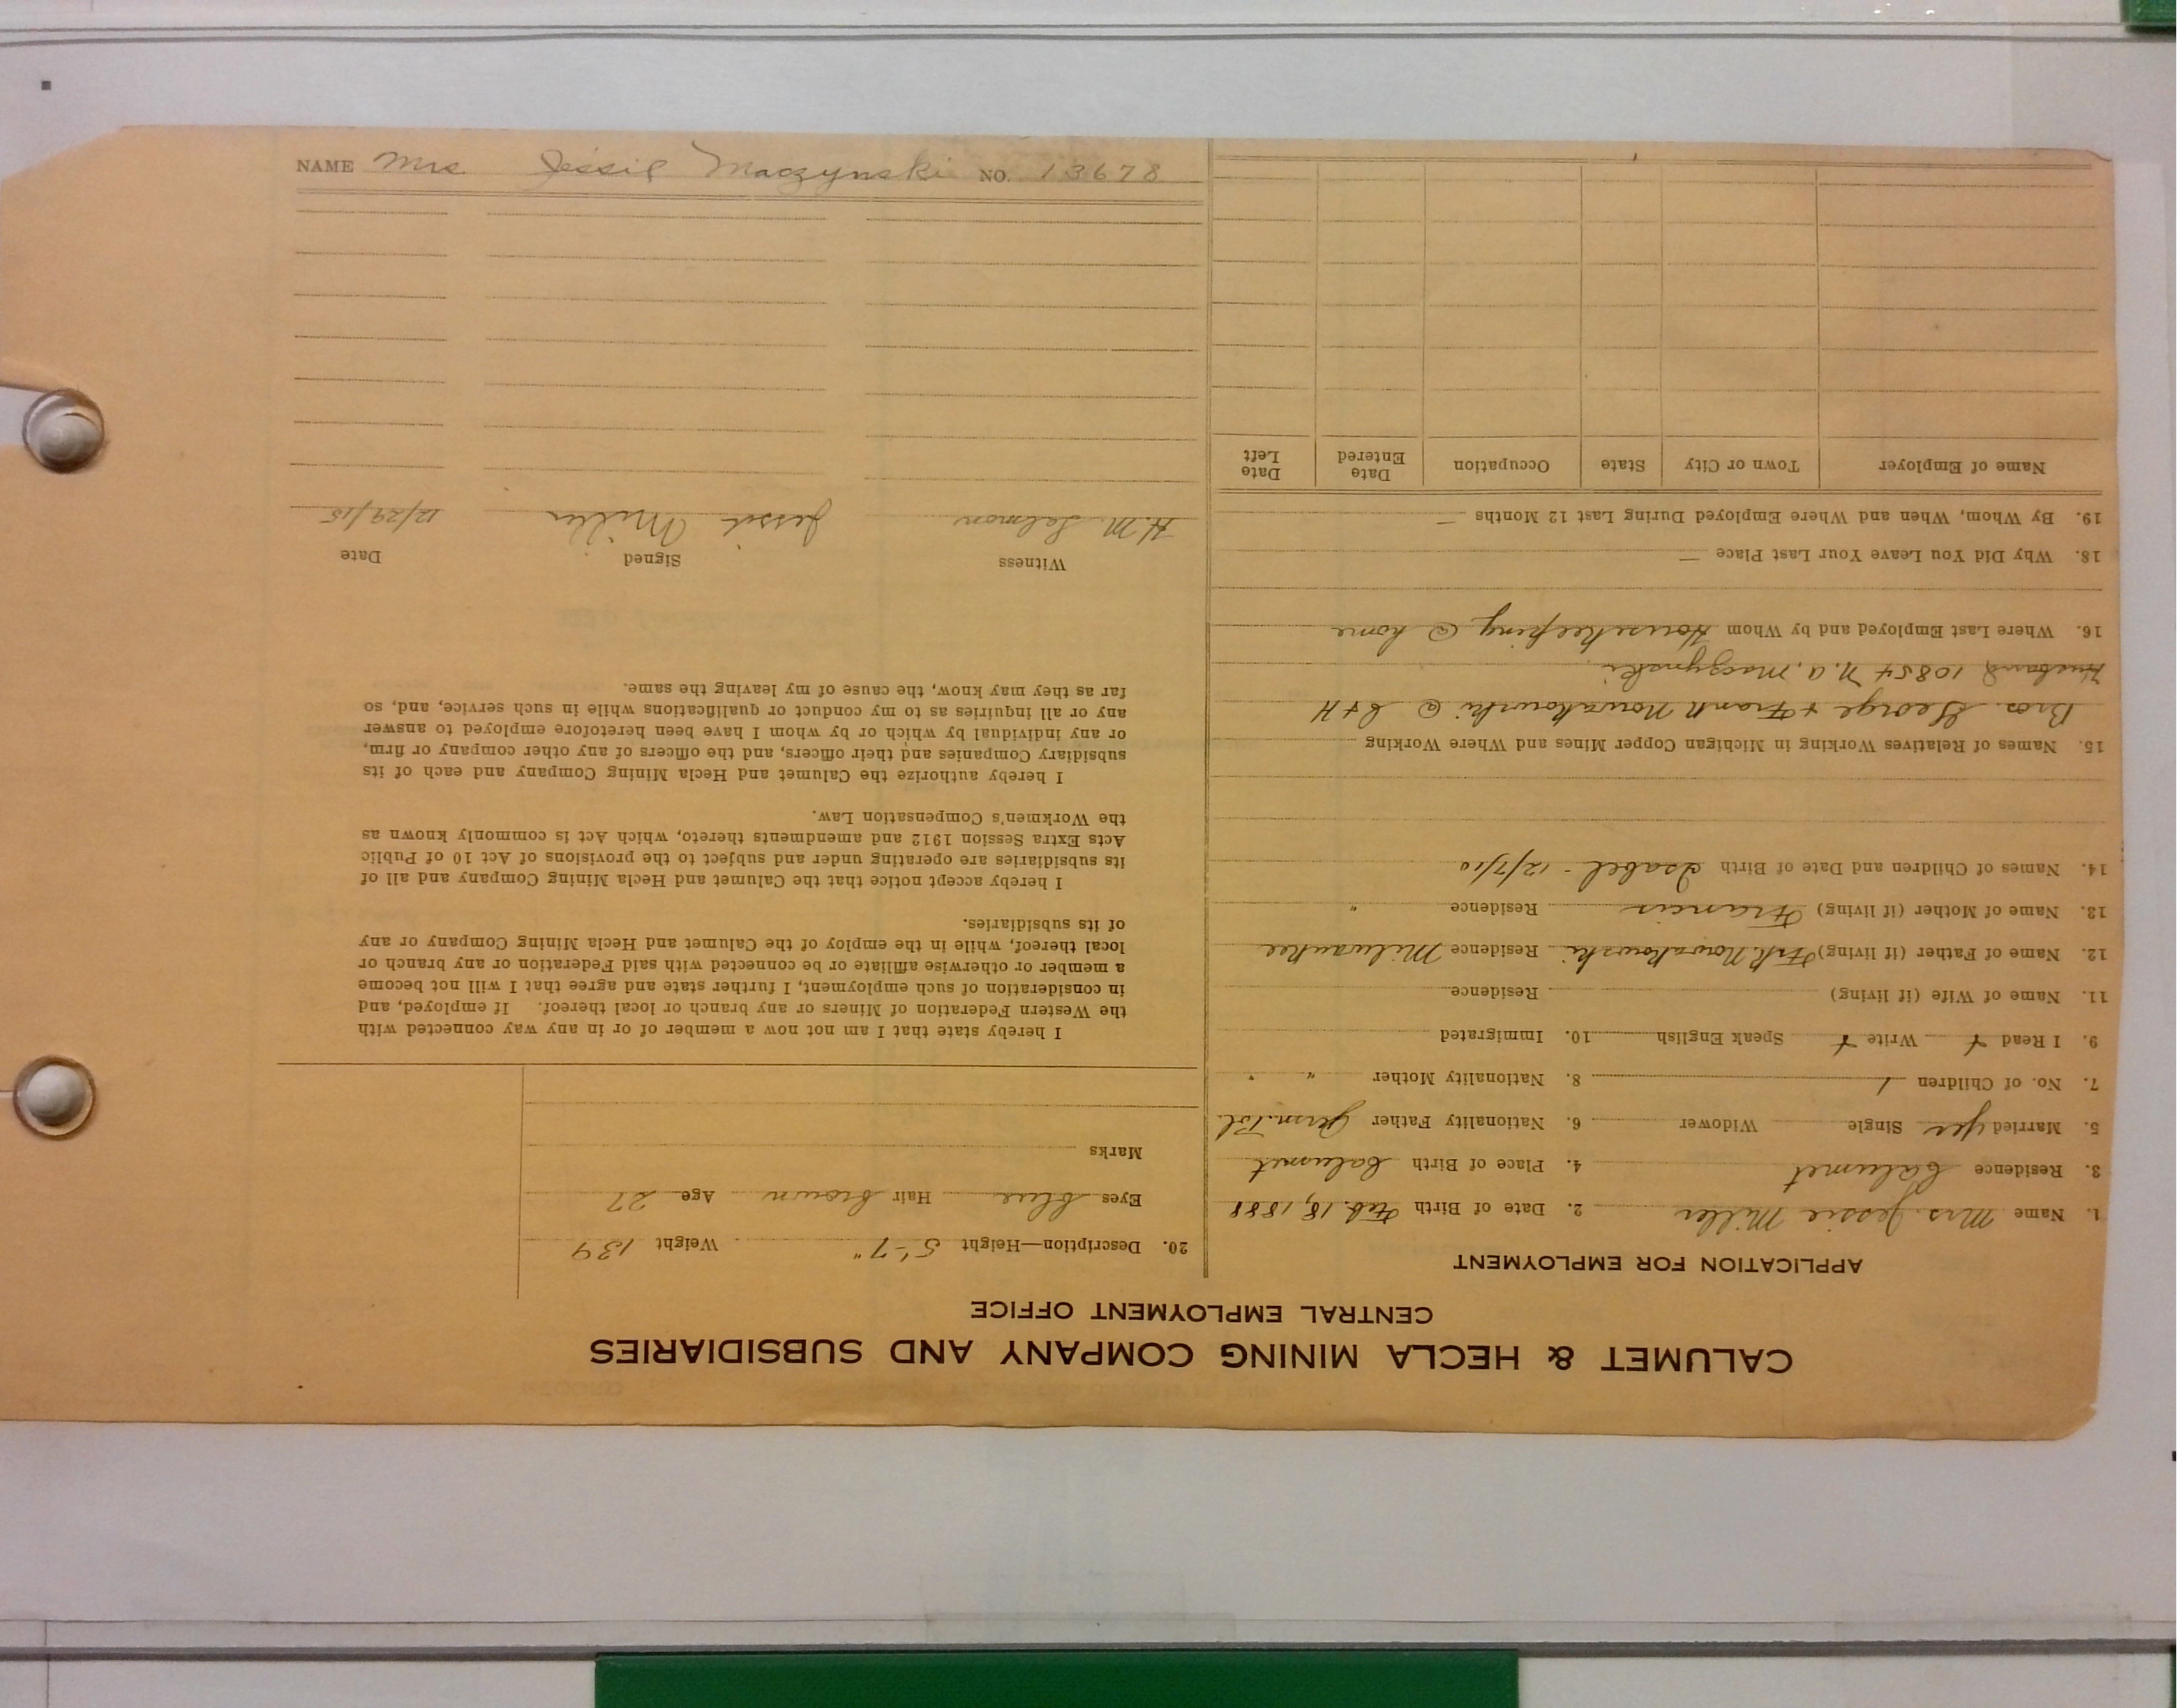 CALUMET & HECLA MINING COMPANY AND SUBSIDIARIES
CENTRAL EMPLOYMENT OFFICE
APPLICATION FOR EMPLOYMENT
1. Name Mrs. Jessie Miller 2. Date of Birth Feb. 18, 1888
3. Residence Calumet 4. Place of Birth Calumet
5. Married yes Single Widower 6. Nationality Father Germ. Pol.
7. No. of Children 1 8. Nationality Mother " "
9. I Read + Write + Speak English 10. Immigrated
11. Name of Wife (if living) Residence
12. Name of Father (if living) Frk. Nowakowski Residence Milwaukee
13. Name of Mother (if living) Francis Residence "
14. Names of Children and Date of Birth Isabel - 12/7/10
15. Names of Relatives Working in Michigan Copper Mines and Where Working
Bros. George + Frank Nowakowski @ C + H
Husband, 10854 N. A. Maczynski
16. Where Last Employed and by Whom Housekeeping @ home
18. Why Did You Leave Your Last Place —
19. By Whom, When and Where Employed During Last 12 Months —
Name of Employer Town or City State Occupation Date Entered Date Left
20. Description—Height 5'-7" Weight 139
Eyes blue Hair brown Age 27
Marks
I hereby state that I am not now a member of or in any way connected with
the Western Federation of Miners or any branch or local thereof. If employed, and
in consideration of such employment, I further state and agree that I will not become
a member or otherwise affiliate or be connected with said Federation or any branch or
local thereof, while in the employ of the Calumet and Hecla Mining Company or any
of its subsidiaries.
I hereby accept notice that the Calumet and Hecla Mining Company and all of
its subsidiaries are operating under and subject to the provisions of Act 10 of Public
Acts Extra Session 1912 and amendments thereto, which Act is commonly known as
the Workmen's Compensation Law.
I hereby authorize the Calumet and Hecla Mining Company and each of its
subsidiary Companies and their officers, and the officers of any other company or firm,
or any individual by which or by whom I have been heretofore employed to answer
any or all inquiries as to my conduct or qualifications while in such service, and, so
far as they may know, the cause of my leaving the same.
Witness Signed Date
H. M. Salmon Jessie Miller 12/29/15
NAME Mrs Jessie Maczynski NO. 13678